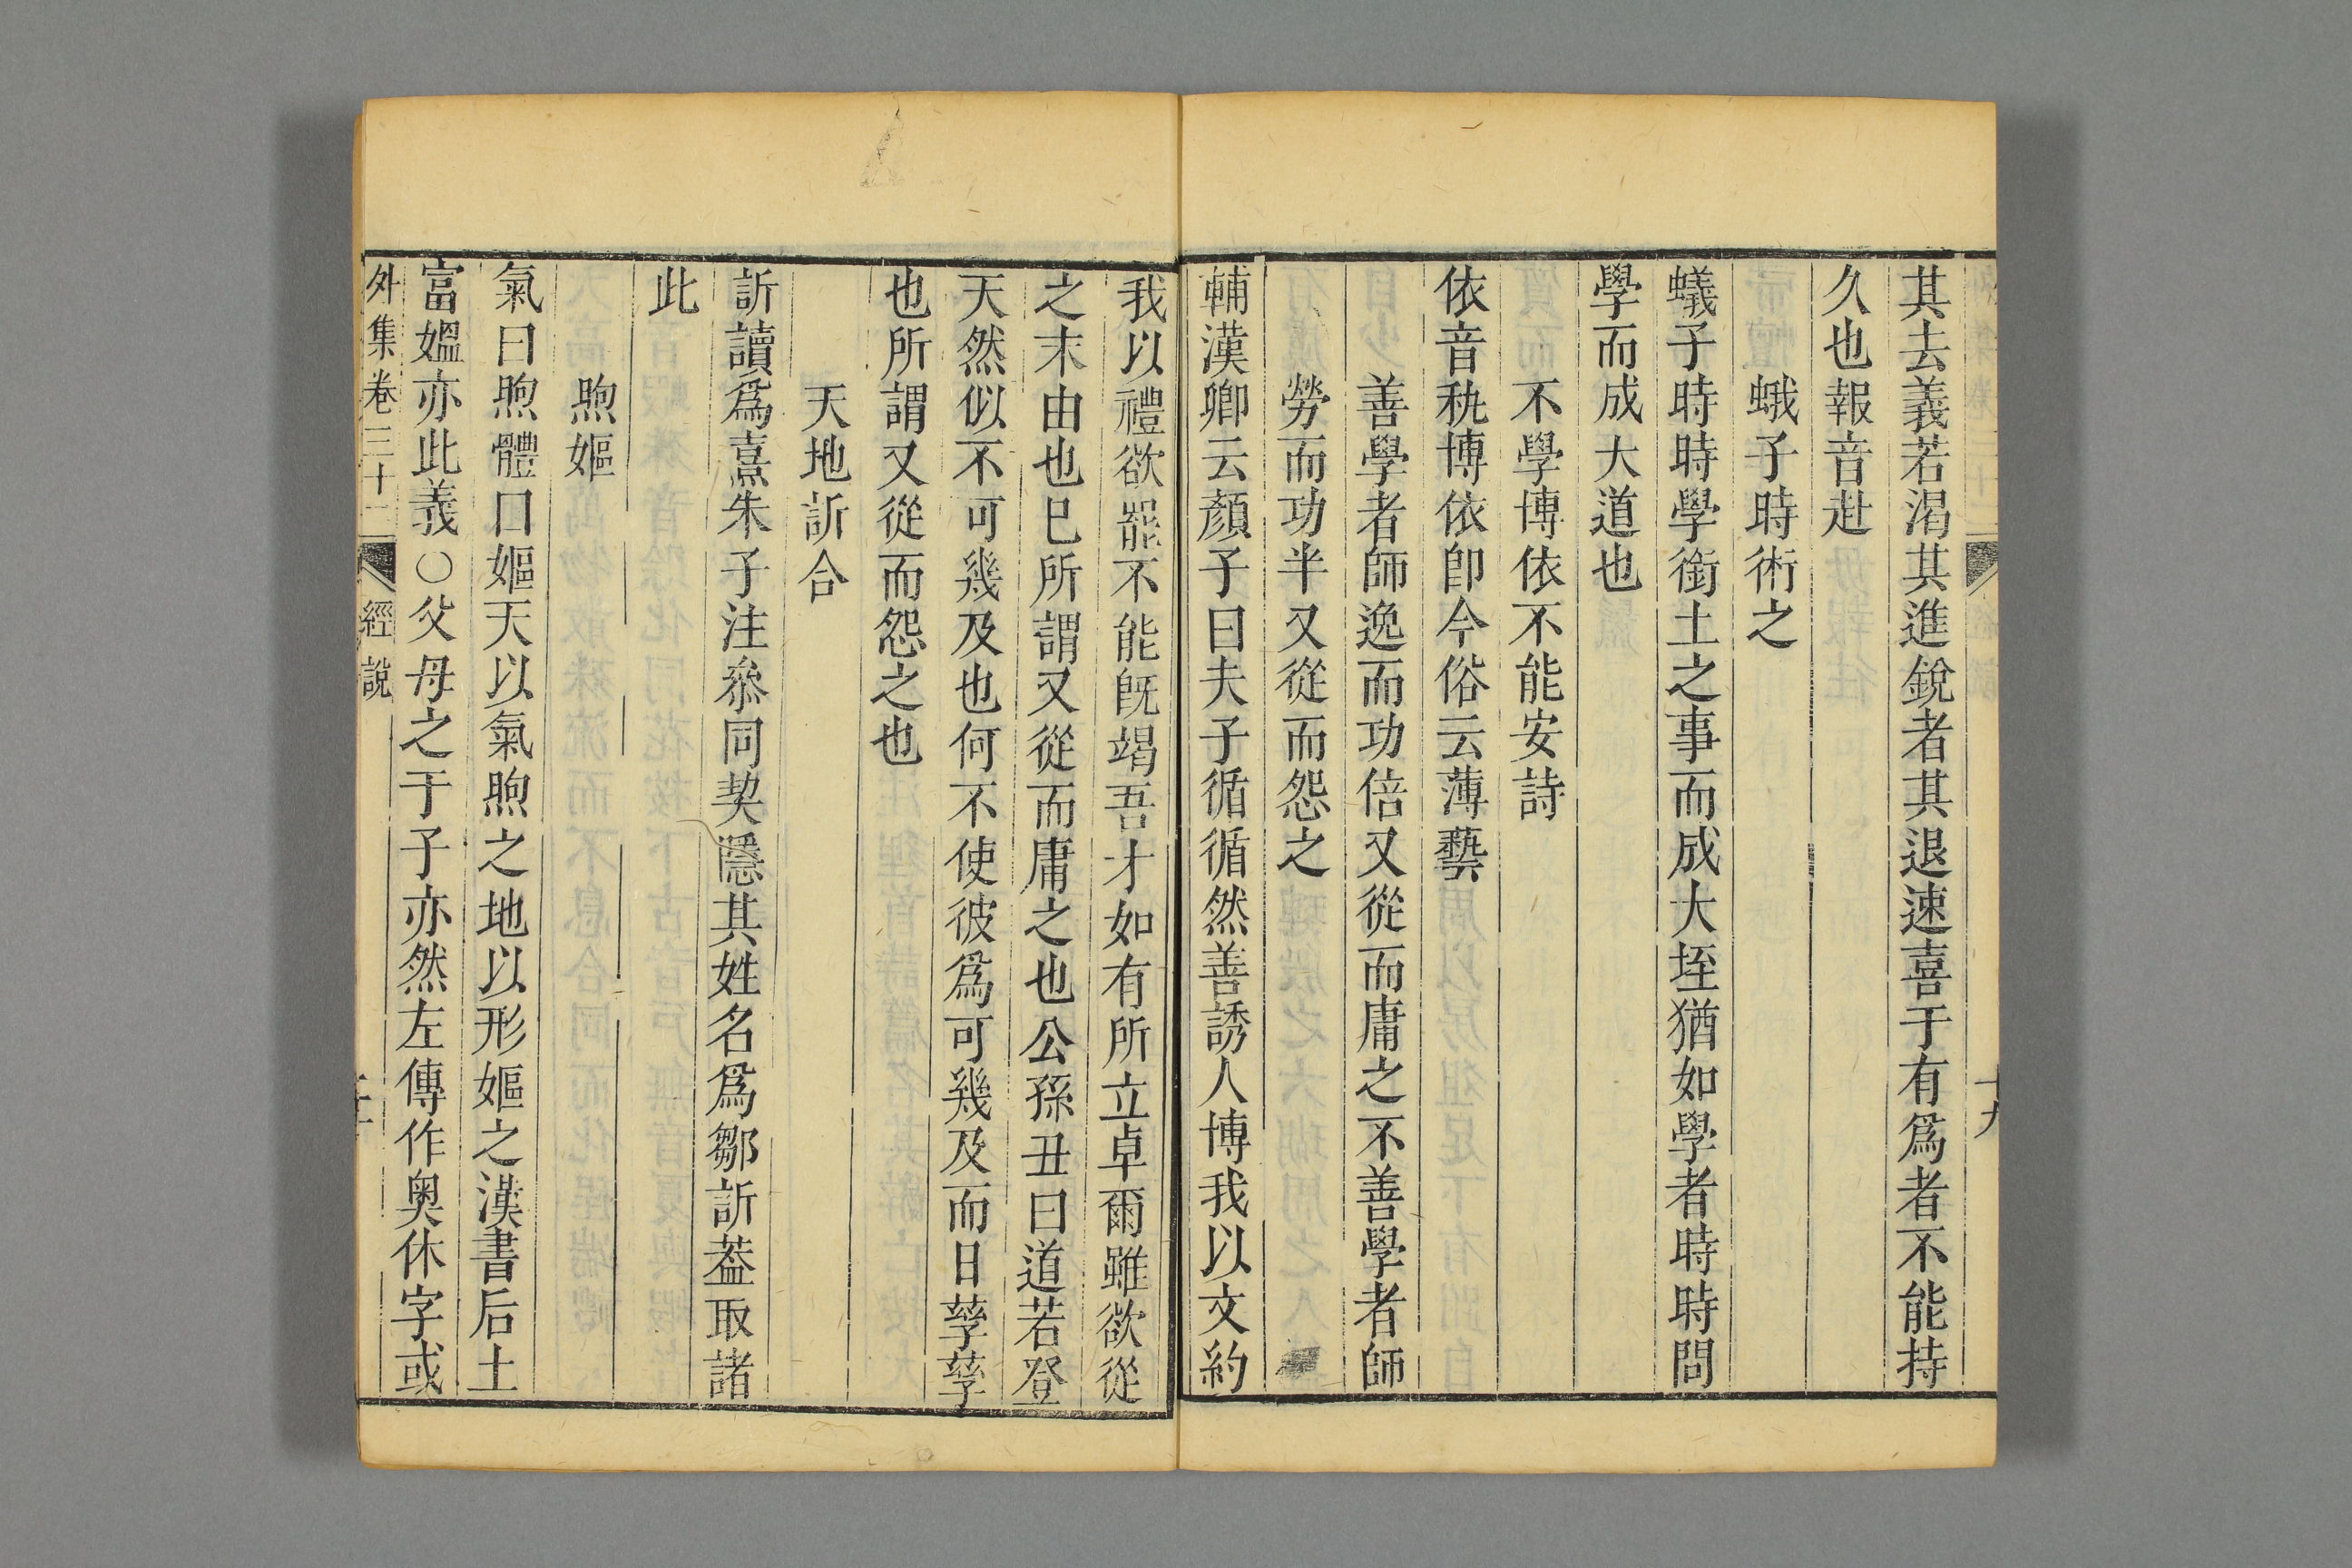 其去義若渴其進銳者其退速喜于有爲者不能持
久也報音赴
蛾子時術之
蟻子時時學銜土之事而成大垤猶如學者時時問
學而成大道也
不學博依不能安詩
依音秇博依卽今俗云薄藝
善學者師逸而功倍又從而庸之不善學者師
勞而功半又從而怨之
輔漢卿云顏子曰夫子循循然善誘人博我以文約
我以禮欲罷不能旣竭吾才如有所立卓爾雖欲從
之末由也巳所謂又從而庸之也公孫丑曰道若登
天然似不可幾及也何不使彼爲可幾及而日孳孳
也所謂又從而怨之也
天地訢合
訢讀爲熹朱子注叅同契隱其姓名爲鄒訢葢取諸
此
煦嫗
氣曰煦體曰嫗天以氣煦之地以形嫗之漢書后土
富媼亦此義○父母之于子亦然左傳作奥休字或
外集卷三十二 經說